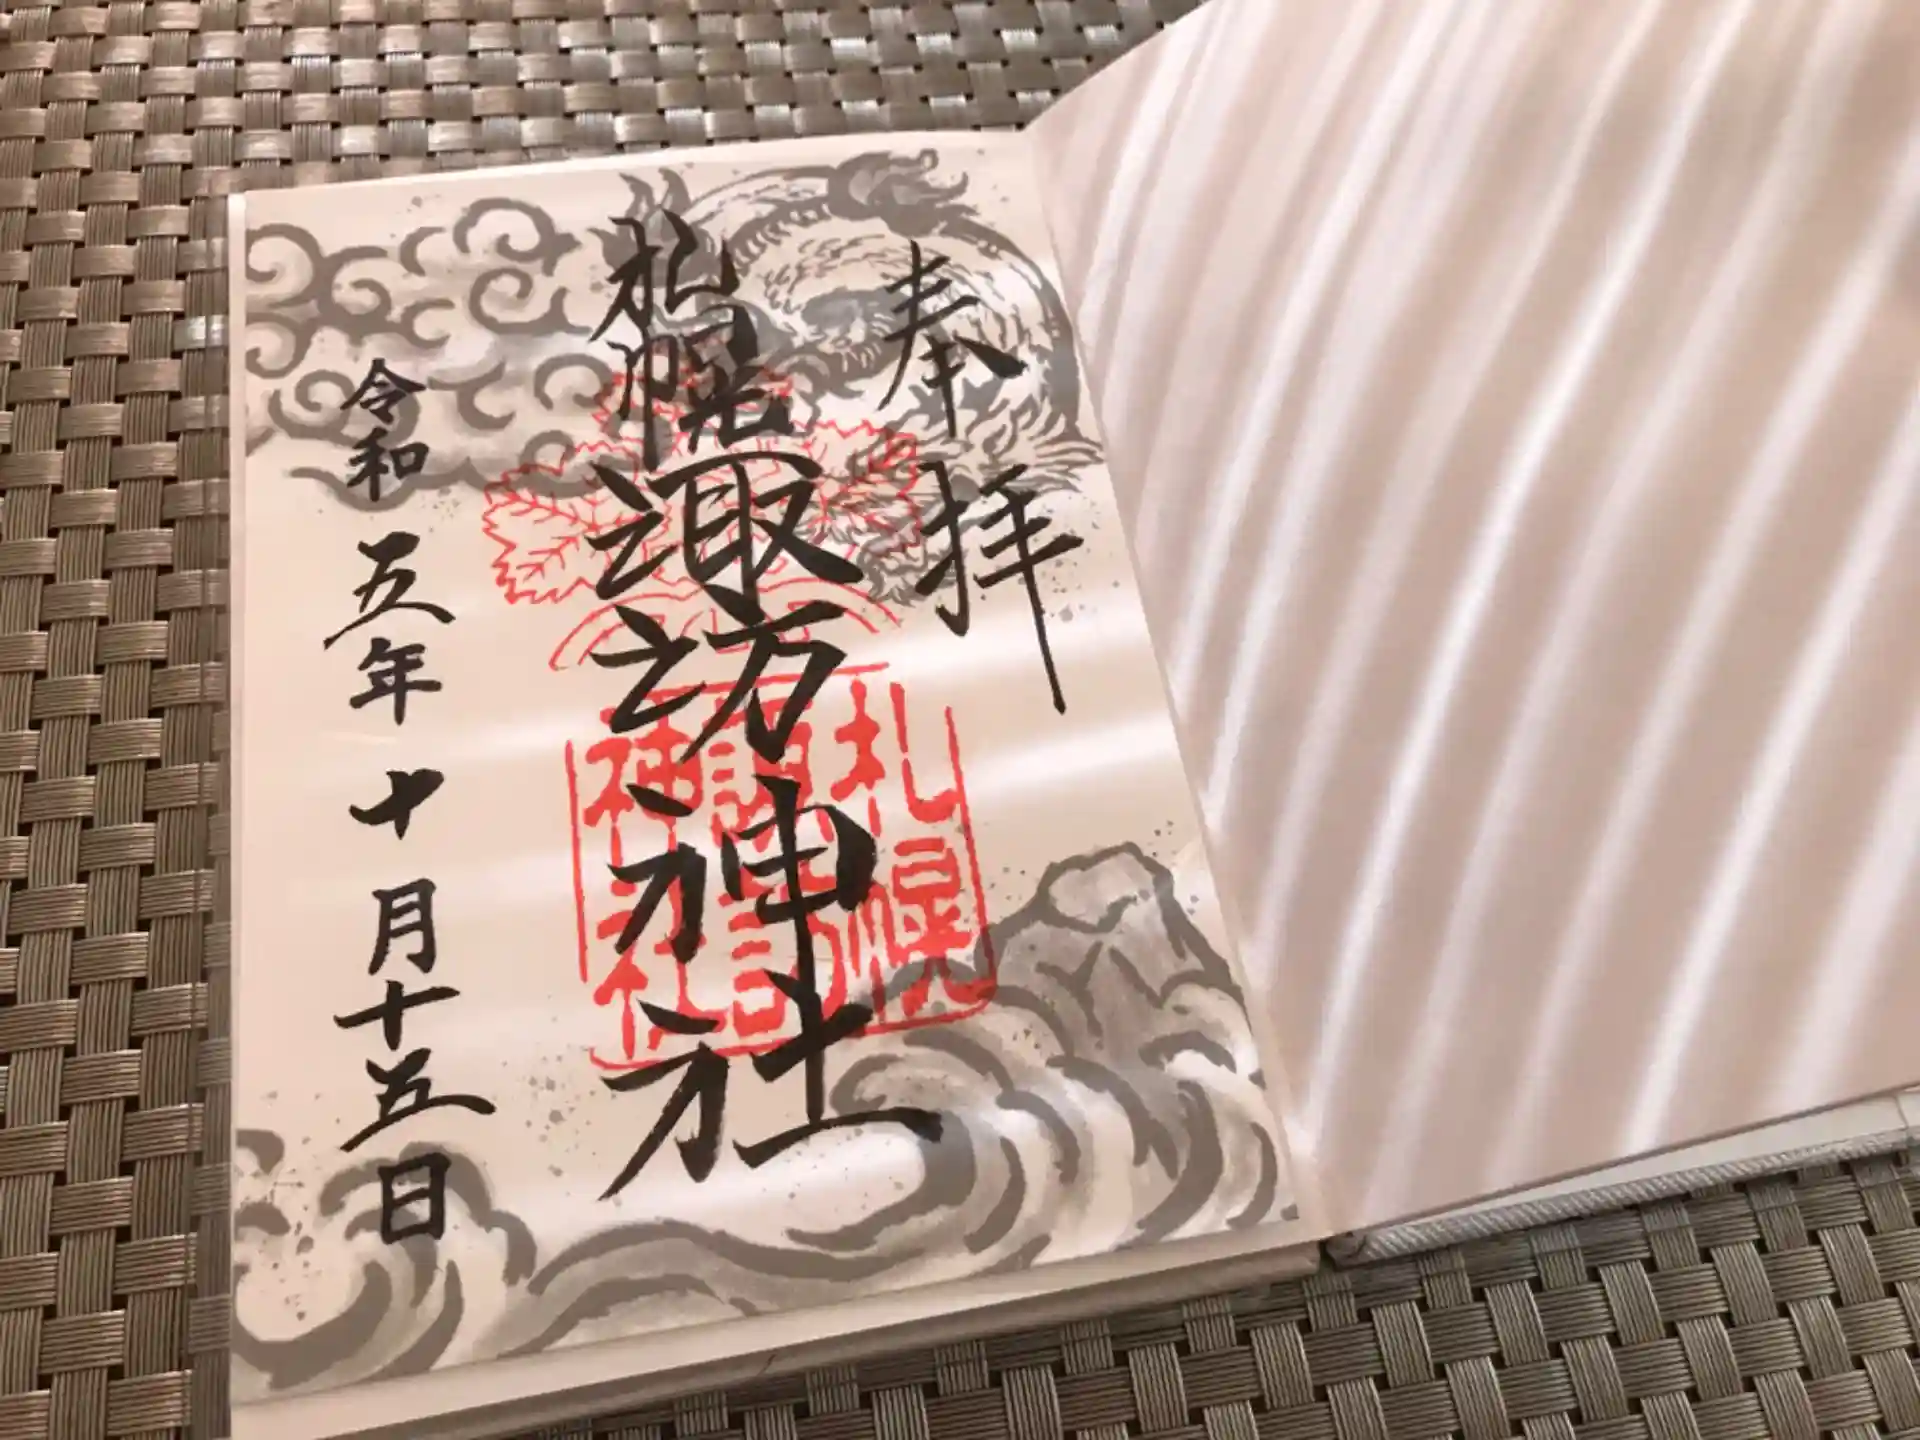 奉拝
札幌諏訪神社
札幌
諏訪
神社
令和五年十月十五日